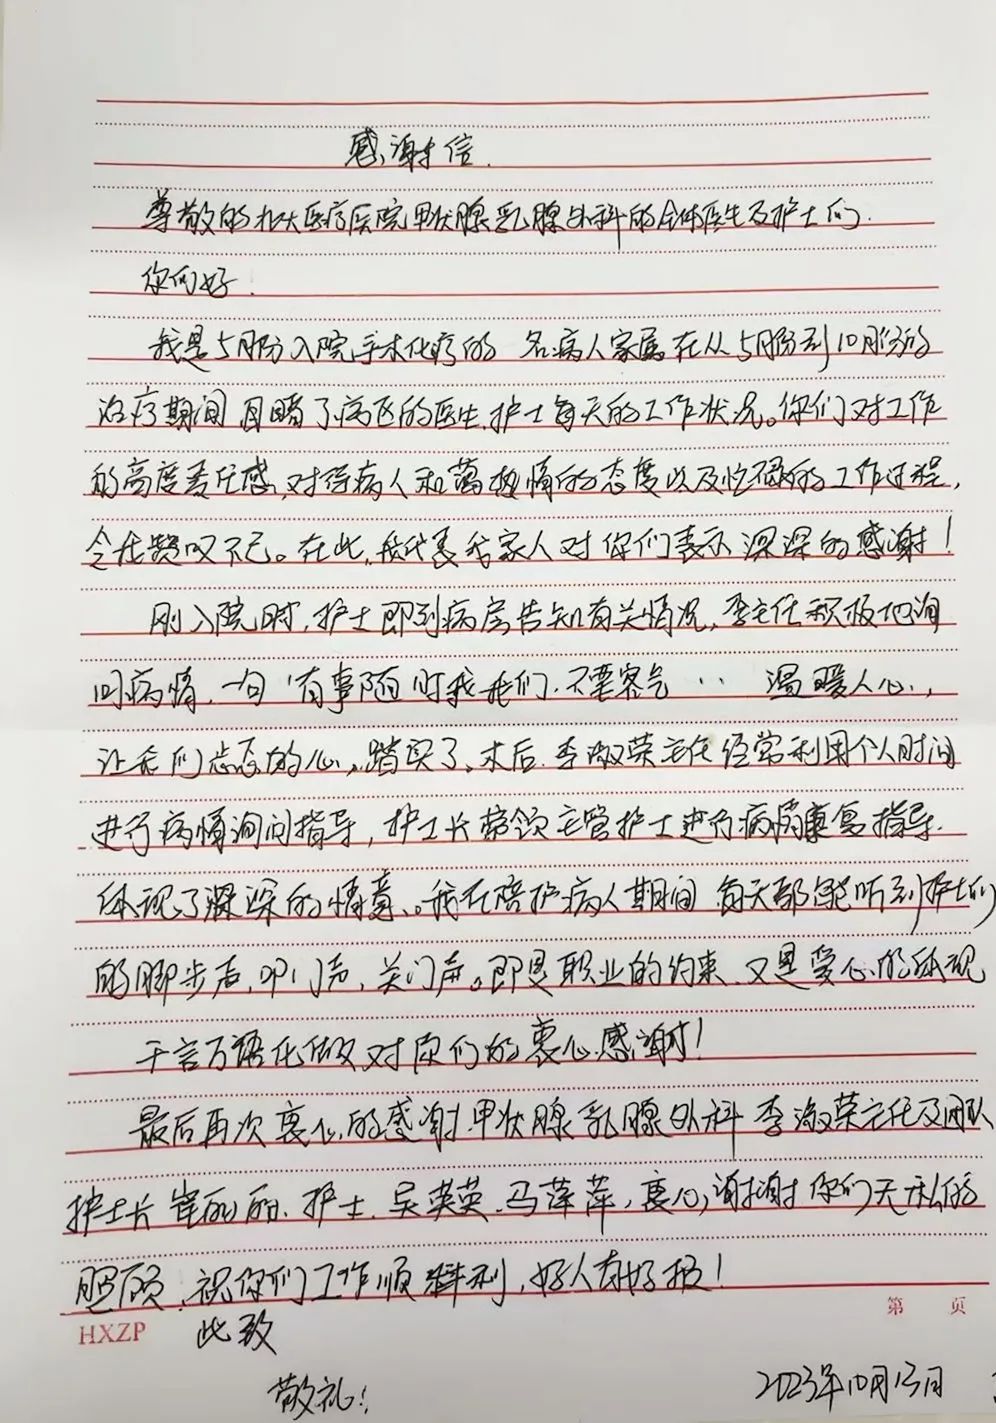 感谢信.
尊敬的北大医疗医院甲状腺乳腺外科的全体医生及护士们.
你们好!
我是5月份入院手术化疗的 名病人家属在从5月份到10月份的
治疗期间目睹了病区的医生.护士每天的工作状况。你们对工作
的高度责任感,对待病人和蔼热情的态度以及忙碌的工作过程,
令我赞叹不已。在此,我代表我家人对你们表示深深的感谢!
刚入院时,护士即到病房告知有关情况,李主任积极地询
问病情,一句"有事随时找我们.不要客气…温暖人心,
让我们忐忑的心,踏实了。术后.李淑荣主任经常利用个人时间
进行病情询问指导,护士长带领主管护士进行病房康复指导.
体现了深深的情意。我在陪护病人期间 每天都能听到护士们
的脚步声,叩门声,关门声。即是职业的约束、又是爱心的体现
千言万语化做对你们的衷心感谢!
最后再次衷心的感谢甲状腺乳腺外科李淑荣主任及团队
护士长崔丽丽、护士.吴英英、马萍萍,衷心谢谢你们无私的
照顾,祝你们工作顺利,好人有好报!
HXZP 此致 第 页
敬礼! 2023年10月13日